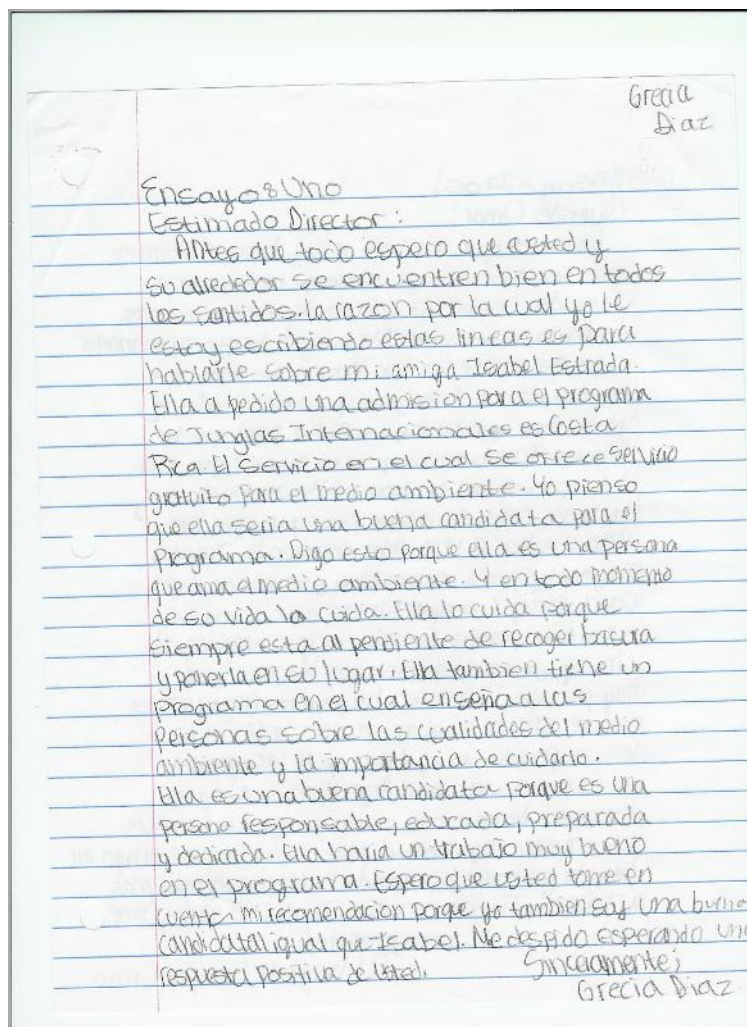 Grecia
Diaz
Ensayo: Uno
Estimado Director:
Antes que todo espero que usted y
su alrededor se encuentren bien en todos
los sentidos. la razon por la cual yo le
estoy escribiendo estas lineas es para
hablarle sobre mi amiga Isabel Estrada.
Ella a pedido una admision para el programa
de Junglas Internacionales es Costa
Rica. El servicio en el cual se ofrece servicio
gratuito para el medio ambiente. Yo pienso
que ella seria una buena candidata para el
programa. Digo esto porque ella es una persona
que ama el medio ambiente. Y en todo momento
de su vida lo cuida. Ella lo cuida porque
siempre esta al pendiente de recoger basura
y ponerla en su lugar. Ella tambien tiene un
programa en el cual enseña a las
personas sobre las cualidades del medio
ambiente y la importancia de cuidarlo.
Ella es una buena candidata porque es una
persona responsable, educada, preparada
y dedicada. Ella haria un trabajo muy bueno
en el programa. Espero que usted tome en
cuenta mi recomendacion porque yo tambien soy una buena
candidata al igual que Isabel. Me despido esperando una
respuesta positiva de usted. Sinceramente;
Grecia Diaz